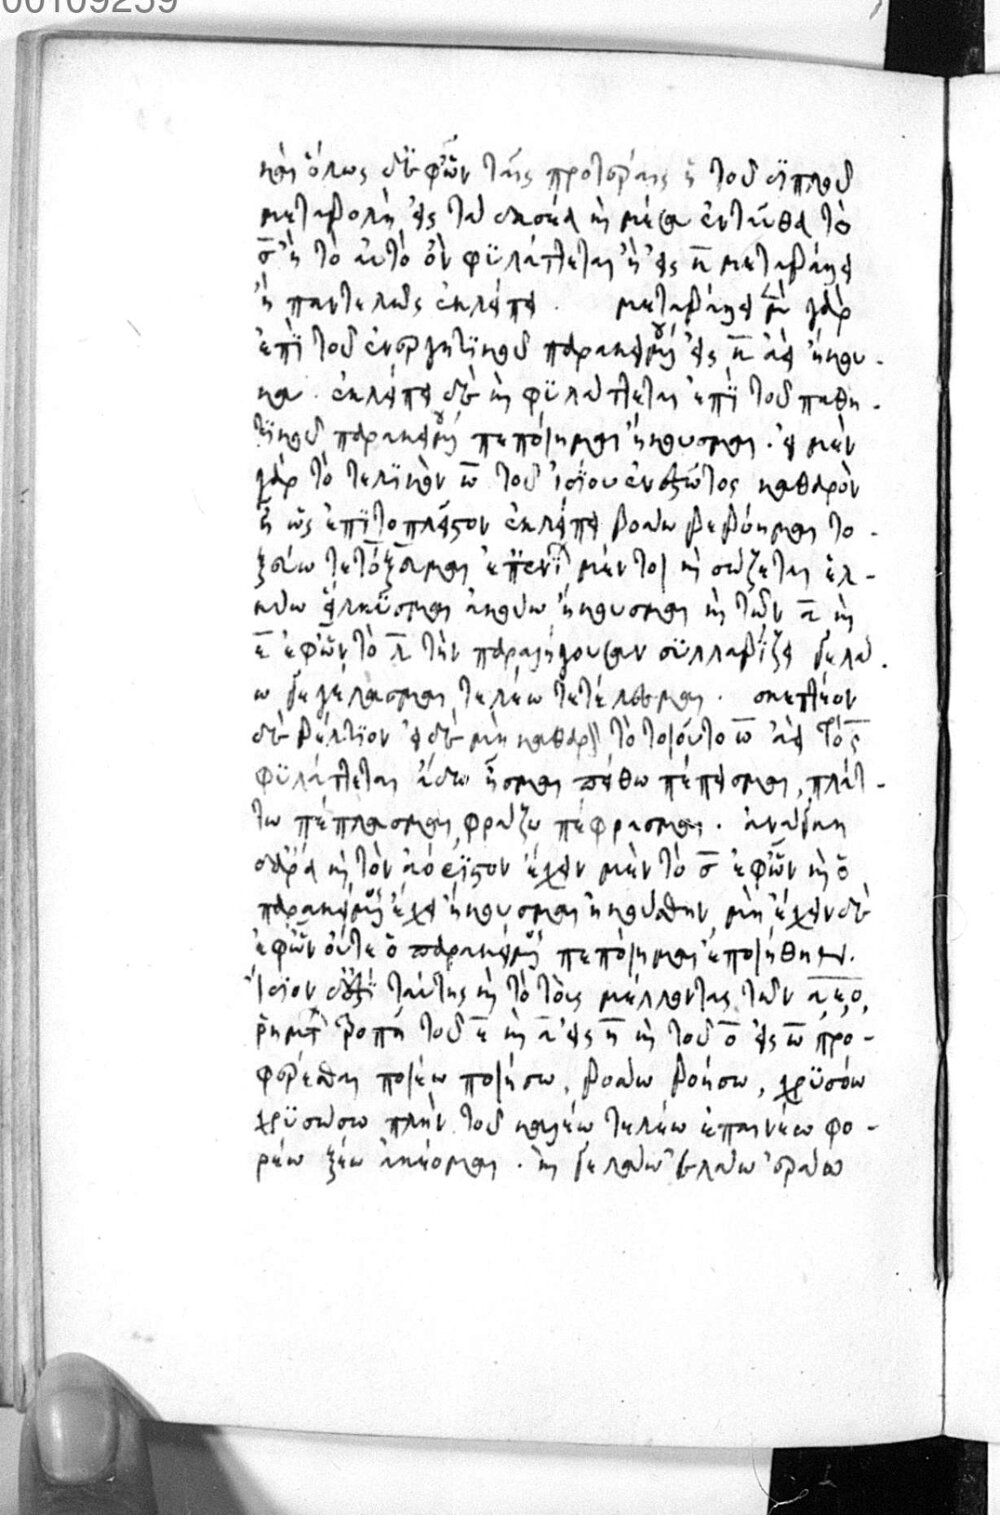 00109259
καὶ ὅλως δ' ἐφ' ὧν ταῖς προτέραις ἡ τοῦ διπλοῦ
μεταβολὴ εἰς τὰ δασέα καὶ μέσα ἐνταῦθα τὸ
σ̄ ἢ τὸ αὐτὸ ὂν φυλάττεται ἢ εἰς κ̄ μεταβάλλει
ἢ παντελῶς ἐκλείπει . μεταβάλλει μὲν γὰρ
ἐπὶ τοῦ ἐνεργητικοῦ παρακειμένου εἰς κ̄ ἀεὶ ἤκου-
κα . ἐκλείπει δὲ καὶ φυλάττεται ἐπὶ τοῦ παθη-
τικοῦ παρακειμένου πεποίημαι ἤκουσμαι . εἰ μὲν
γὰρ τὸ τελικὸν ω̄ τοῦ ἰδίου ἐνεστῶτος καθαρὸν
ᾖ ὡς ἐπιτοπλεῖστον ἐκλείπει βοάω βεβόημαι το-
ξεύω τετόξευμαι ἐπ' ἐνίων μέντοι καὶ σώζεται ἑλ-
κύω εἵλκυσμαι ἀκούω ἤκουσμαι καὶ τῶν ᾱ καὶ
ε̄ ἐφ' ὧν τὸ λ̄ τὴν παραλήγουσαν συλλαβίζει γελά-
ω γεγέλασμαι τελέω τετέλεσμαι . σκεπτέον
δὲ βέλτιον εἰ δὲ μὴ καθαρεύει τὸ τοιοῦτο ω̄ ἀεὶ τὸ σ̄
φυλάττεται ᾄδω ᾖσμαι πείθω πέπεισμαι, πλάτ-
τω πέπλασμαι, φράζω πέφρασμαι . ἀνάγκη
ἄρα καὶ τὸν ἀόριστον ἔχειν μὲν τὸ σ̄ ἐφ' ὧν καὶ ὁ
παρακείμενος ἔχει ἤκουσμαι ἠκούσθην, μὴ ἔχειν δὲ
ἐφ' ὧν οὔτε ὁ παρακείμενος πεποίημαι ἐποιήθην.
Ἴδιον δ' ἔτι ταύτης καὶ τὸ τοὺς μέλλοντας τῶν ᾱ ε̄ ο̄
ῥημάτων τροπῇ τοῦ ε̄ καὶ ᾱ εἰς η̄ καὶ τοῦ ο̄ εἰς ω̄ προ-
φέρεσθαι ποιέω ποιήσω, βοάω βοήσω, χρυσόω
χρυσώσω πλὴν τοῦ καλέω τελέω ἐπαινέω φο-
ρέω ξέω ἀκέομαι . καὶ γελάω θλάω σπάω